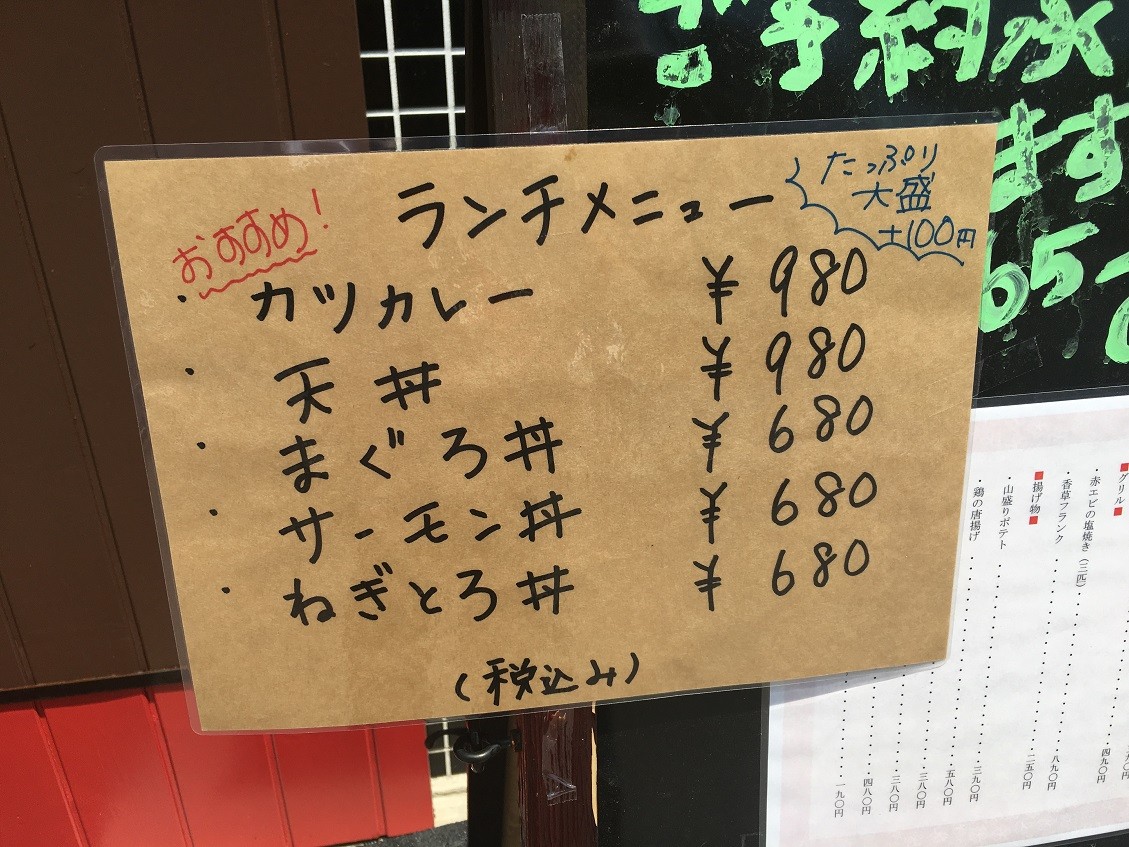 ご予約承
ます
65-
おすすめ!
ランチメニュー
たっぷり
大盛
+100円
・カツカレー ¥980
・天丼 ¥980
・まぐろ丼 ¥680
・サーモン丼 ¥680
・ねぎとろ丼 ¥680
(税込み)
■グリル■
・赤エビの塩焼き(三匹) 四九〇円
・香草フランク 八九〇円
■揚げ物■
・山盛りポテト
・鶏の唐揚げ
二五〇円
三九〇円
五八〇円
三八〇円
三八〇円
四八〇円
一九〇円